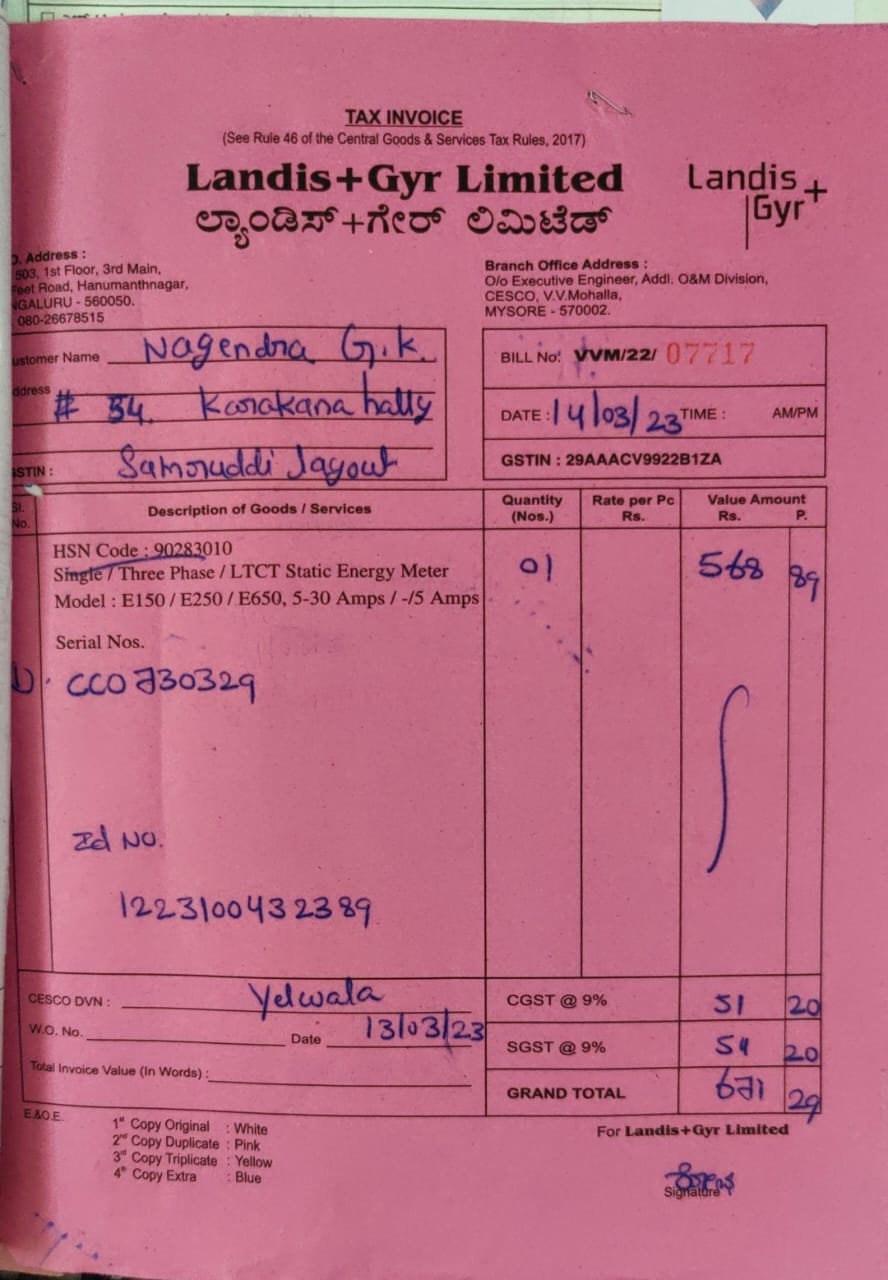 TAX INVOICE
(See Rule 46 of the Central Goods & Services Tax Rules, 2017)
Landis+Gyr Limited
Landis+
Gyr
ಲ್ಯಾಂಡಿಸ್+ಗೇರ್ ಲಿಮಿಟೆಡ್
. Address :
503, 1st Floor, 3rd Main,
eet Road, Hanumanthnagar,
NGALURU - 560050.
080-26678515
Branch Office Address :
O/o Executive Engineer, Addl. O&M Division,
CESCO, V.V.Mohalla,
MYSORE - 570002.
ustomer Name Nagendra G.K.
ddress # 54. Karakana hally
STIN : Samruddi Layout
BILL No: VVM/22/ 07717
DATE : 14/03/23 TIME : AM/PM
GSTIN : 29AAACV9922B1ZA
Sl. No. Description of Goods / Services Quantity (Nos.) Rate per Pc Rs. Value Amount Rs. P.
HSN Code : 90283010
Single / Three Phase / LTCT Static Energy Meter 01 568 89
Model : E150 / E250 / E650, 5-30 Amps / -/5 Amps
Serial Nos.
1). CC0730329
Id No.
1223100432389
CESCO DVN : Yelwala
W.O. No. Date 13/03/23
Total Invoice Value (In Words) :
CGST @ 9% 51 20
SGST @ 9% 51 20
GRAND TOTAL 671 29
E.&O.E.
1st Copy Original : White
2nd Copy Duplicate : Pink
3rd Copy Triplicate : Yellow
4th Copy Extra : Blue
For Landis+Gyr Limited
Signature